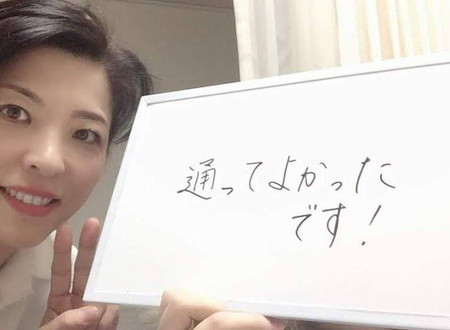 通ってよかった
です!